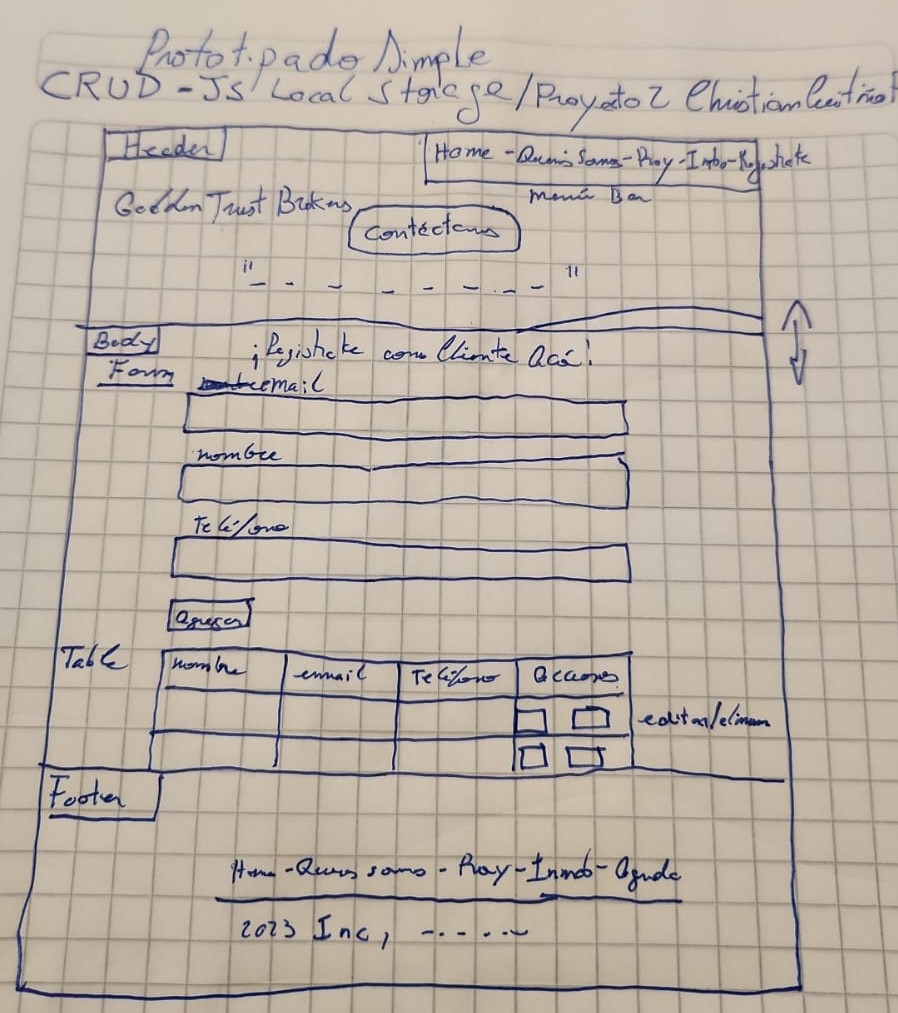 Prototipado Simple
CRUD - JS Local Storage/Proyecto 2 Christian
Header
Home - Quienes Somos - Proy - Inmo - Registrate
Menú Bar
Golden Trust Brokers
Contáctanos
" - - - - - - - "
Body
¡Registrate como Cliente Acá!
Form
email
nombre
Teléfono
agregar
Table
nombre
email
Teléfono
acciones
editar/eliminar
Footer
Home - Quienes somos - Proy - Inmob - Agenda
2023 Inc, - - - - -